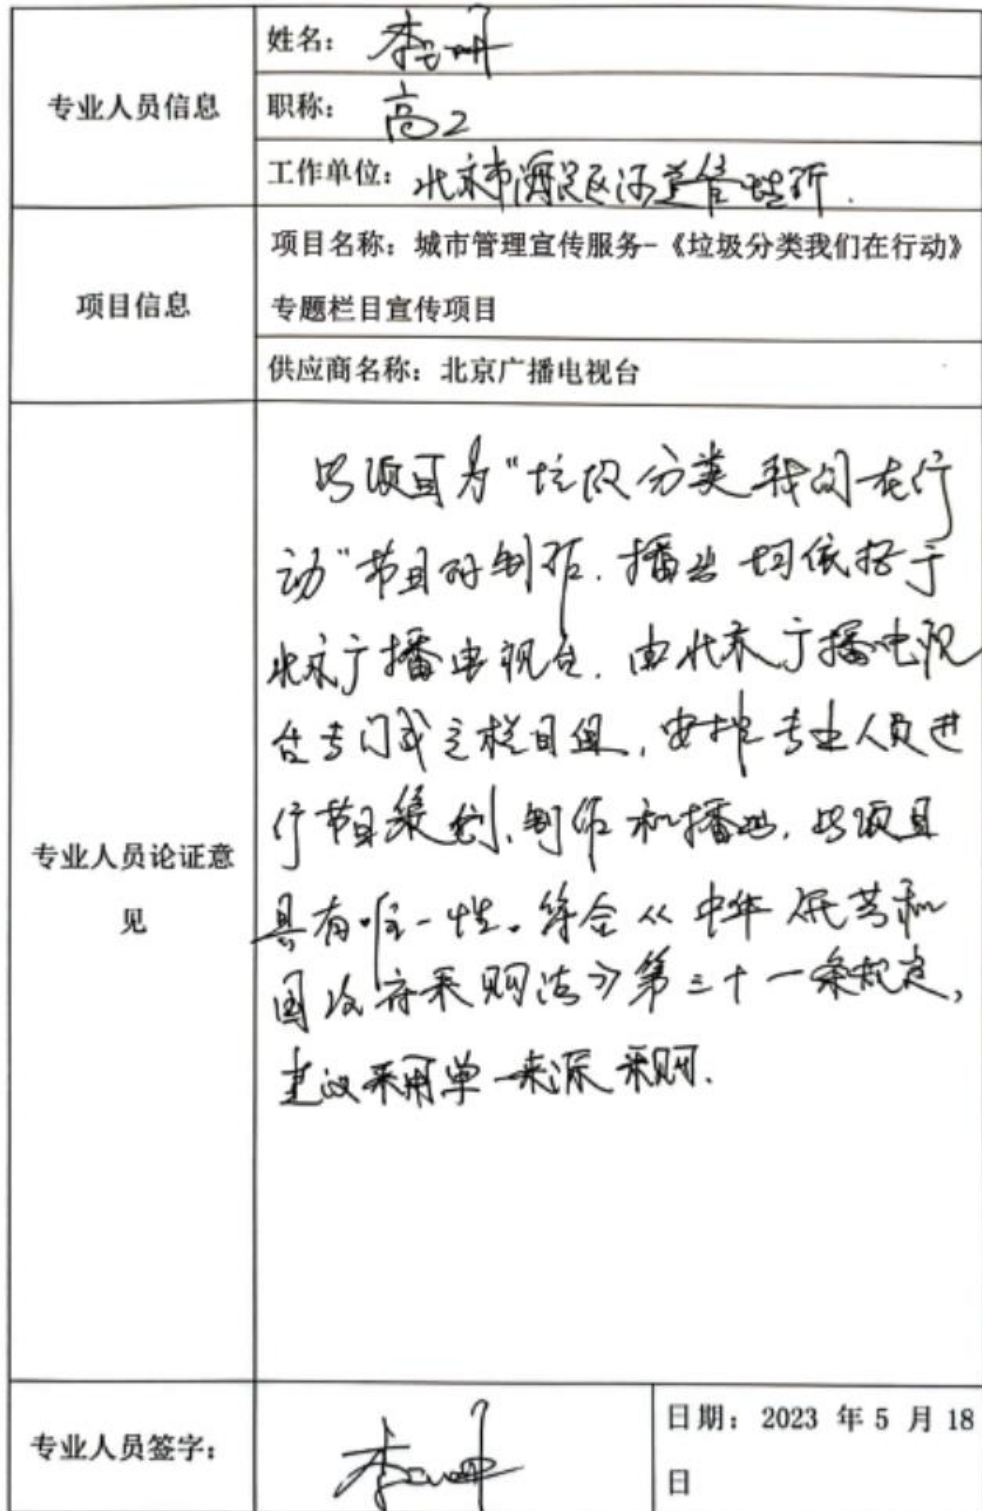 专业人员信息
姓名：李
职称：高工
工作单位：北京市海淀区河道管理所.
项目信息
项目名称：城市管理宣传服务-《垃圾分类我们在行动》
专题栏目宣传项目
供应商名称：北京广播电视台
专业人员论证意
见
此项目为“垃圾分类我们在行
动”节目的制作.播出均依托于
北京广播电视台.由北京广播电视
台专门成立栏目组,安排专业人员进
行节目策划、制作和播出.此项目
具有唯一性。符合《中华人民共和
国政府采购法》第三十一条规定,
建议采用单一来源采购.
专业人员签字：
李
日期：2023 年 5 月 18
日